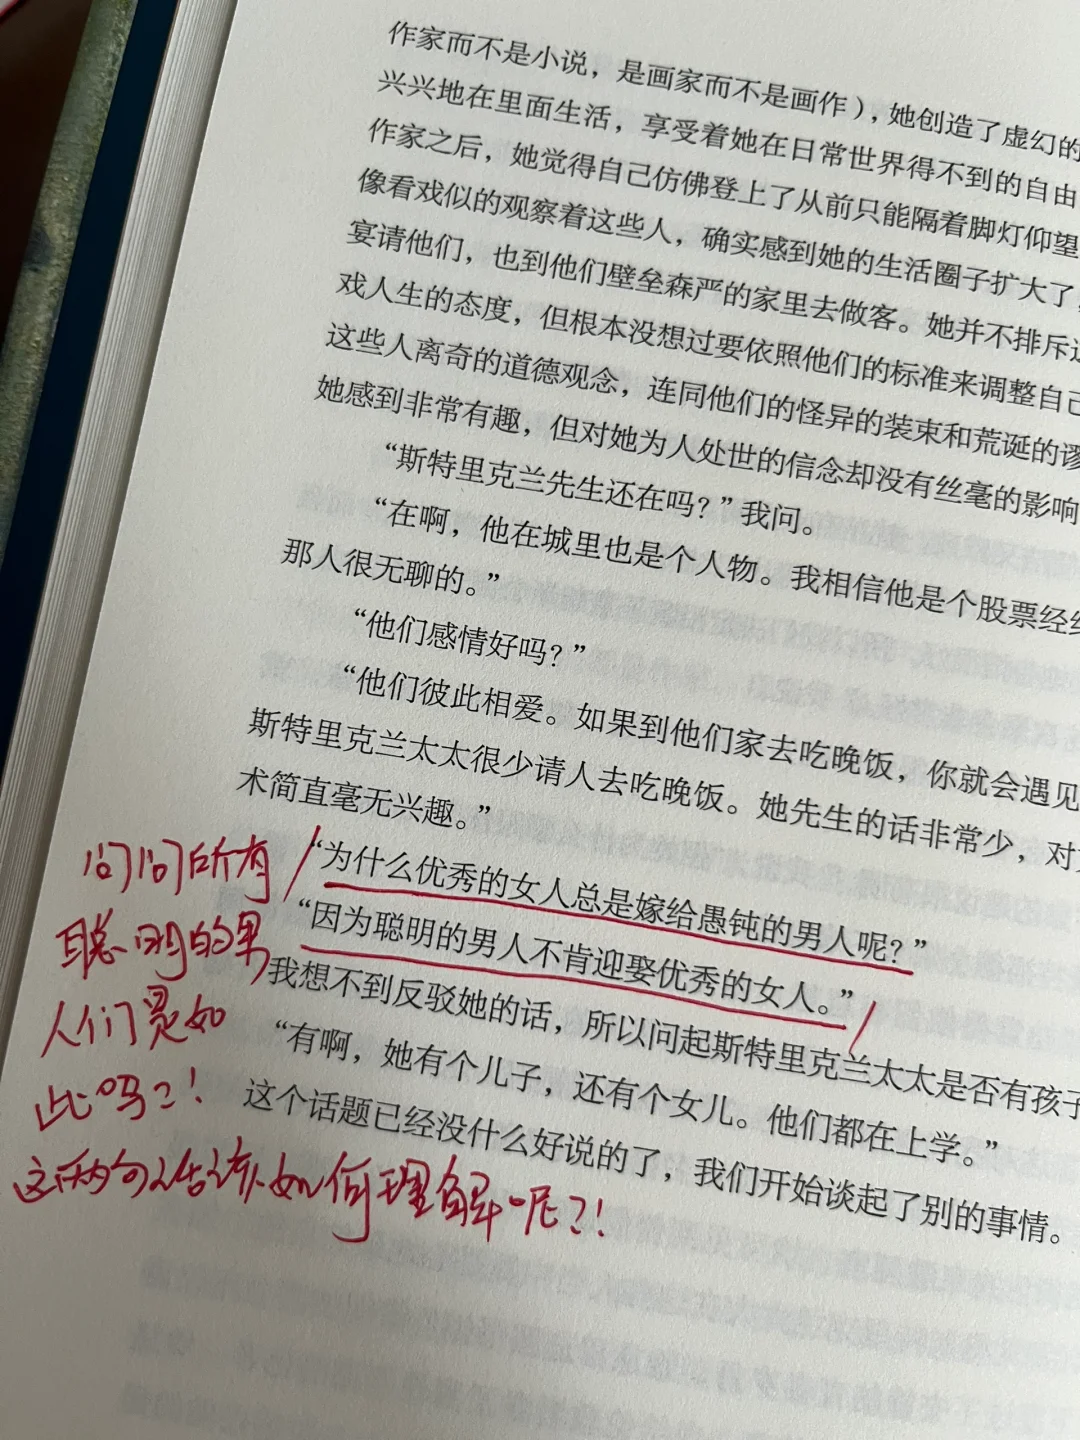 作家而不是小说，是画家而不是画作），她创造了虚幻的
兴兴地在里面生活，享受着她在日常世界得不到的自由
作家之后，她觉得自己仿佛登上了从前只能隔着脚灯仰望
像看戏似的观察着这些人，确实感到她的生活圈子扩大了，
宴请他们，也到他们壁垒森严的家里去做客。她并不排斥
戏人生的态度，但根本没想过要依照他们的标准来调整自己
这些人离奇的道德观念，连同他们的怪异的装束和荒诞的谬
她感到非常有趣，但对她为人处世的信念却没有丝毫的影响
“斯特里克兰先生还在吗？”我问。
“在啊，他在城里也是个人物。我相信他是个股票经
那人很无聊的。”
“他们感情好吗？”
“他们彼此相爱。如果到他们家去吃晚饭，你就会遇见
斯特里克兰太太很少请人去吃晚饭。她先生的话非常少，对
术简直毫无兴趣。”
“为什么优秀的女人总是嫁给愚钝的男人呢？”
“因为聪明的男人不肯迎娶优秀的女人。”
我想不到反驳她的话，所以问起斯特里克兰太太是否有孩子
“有啊，她有个儿子，还有个女儿。他们都在上学。”
这个话题已经没什么好说的了，我们开始谈起了别的事情。
问问所有
聪明的男
人们是如
此吗？！
这两句话该如何理解呢？！